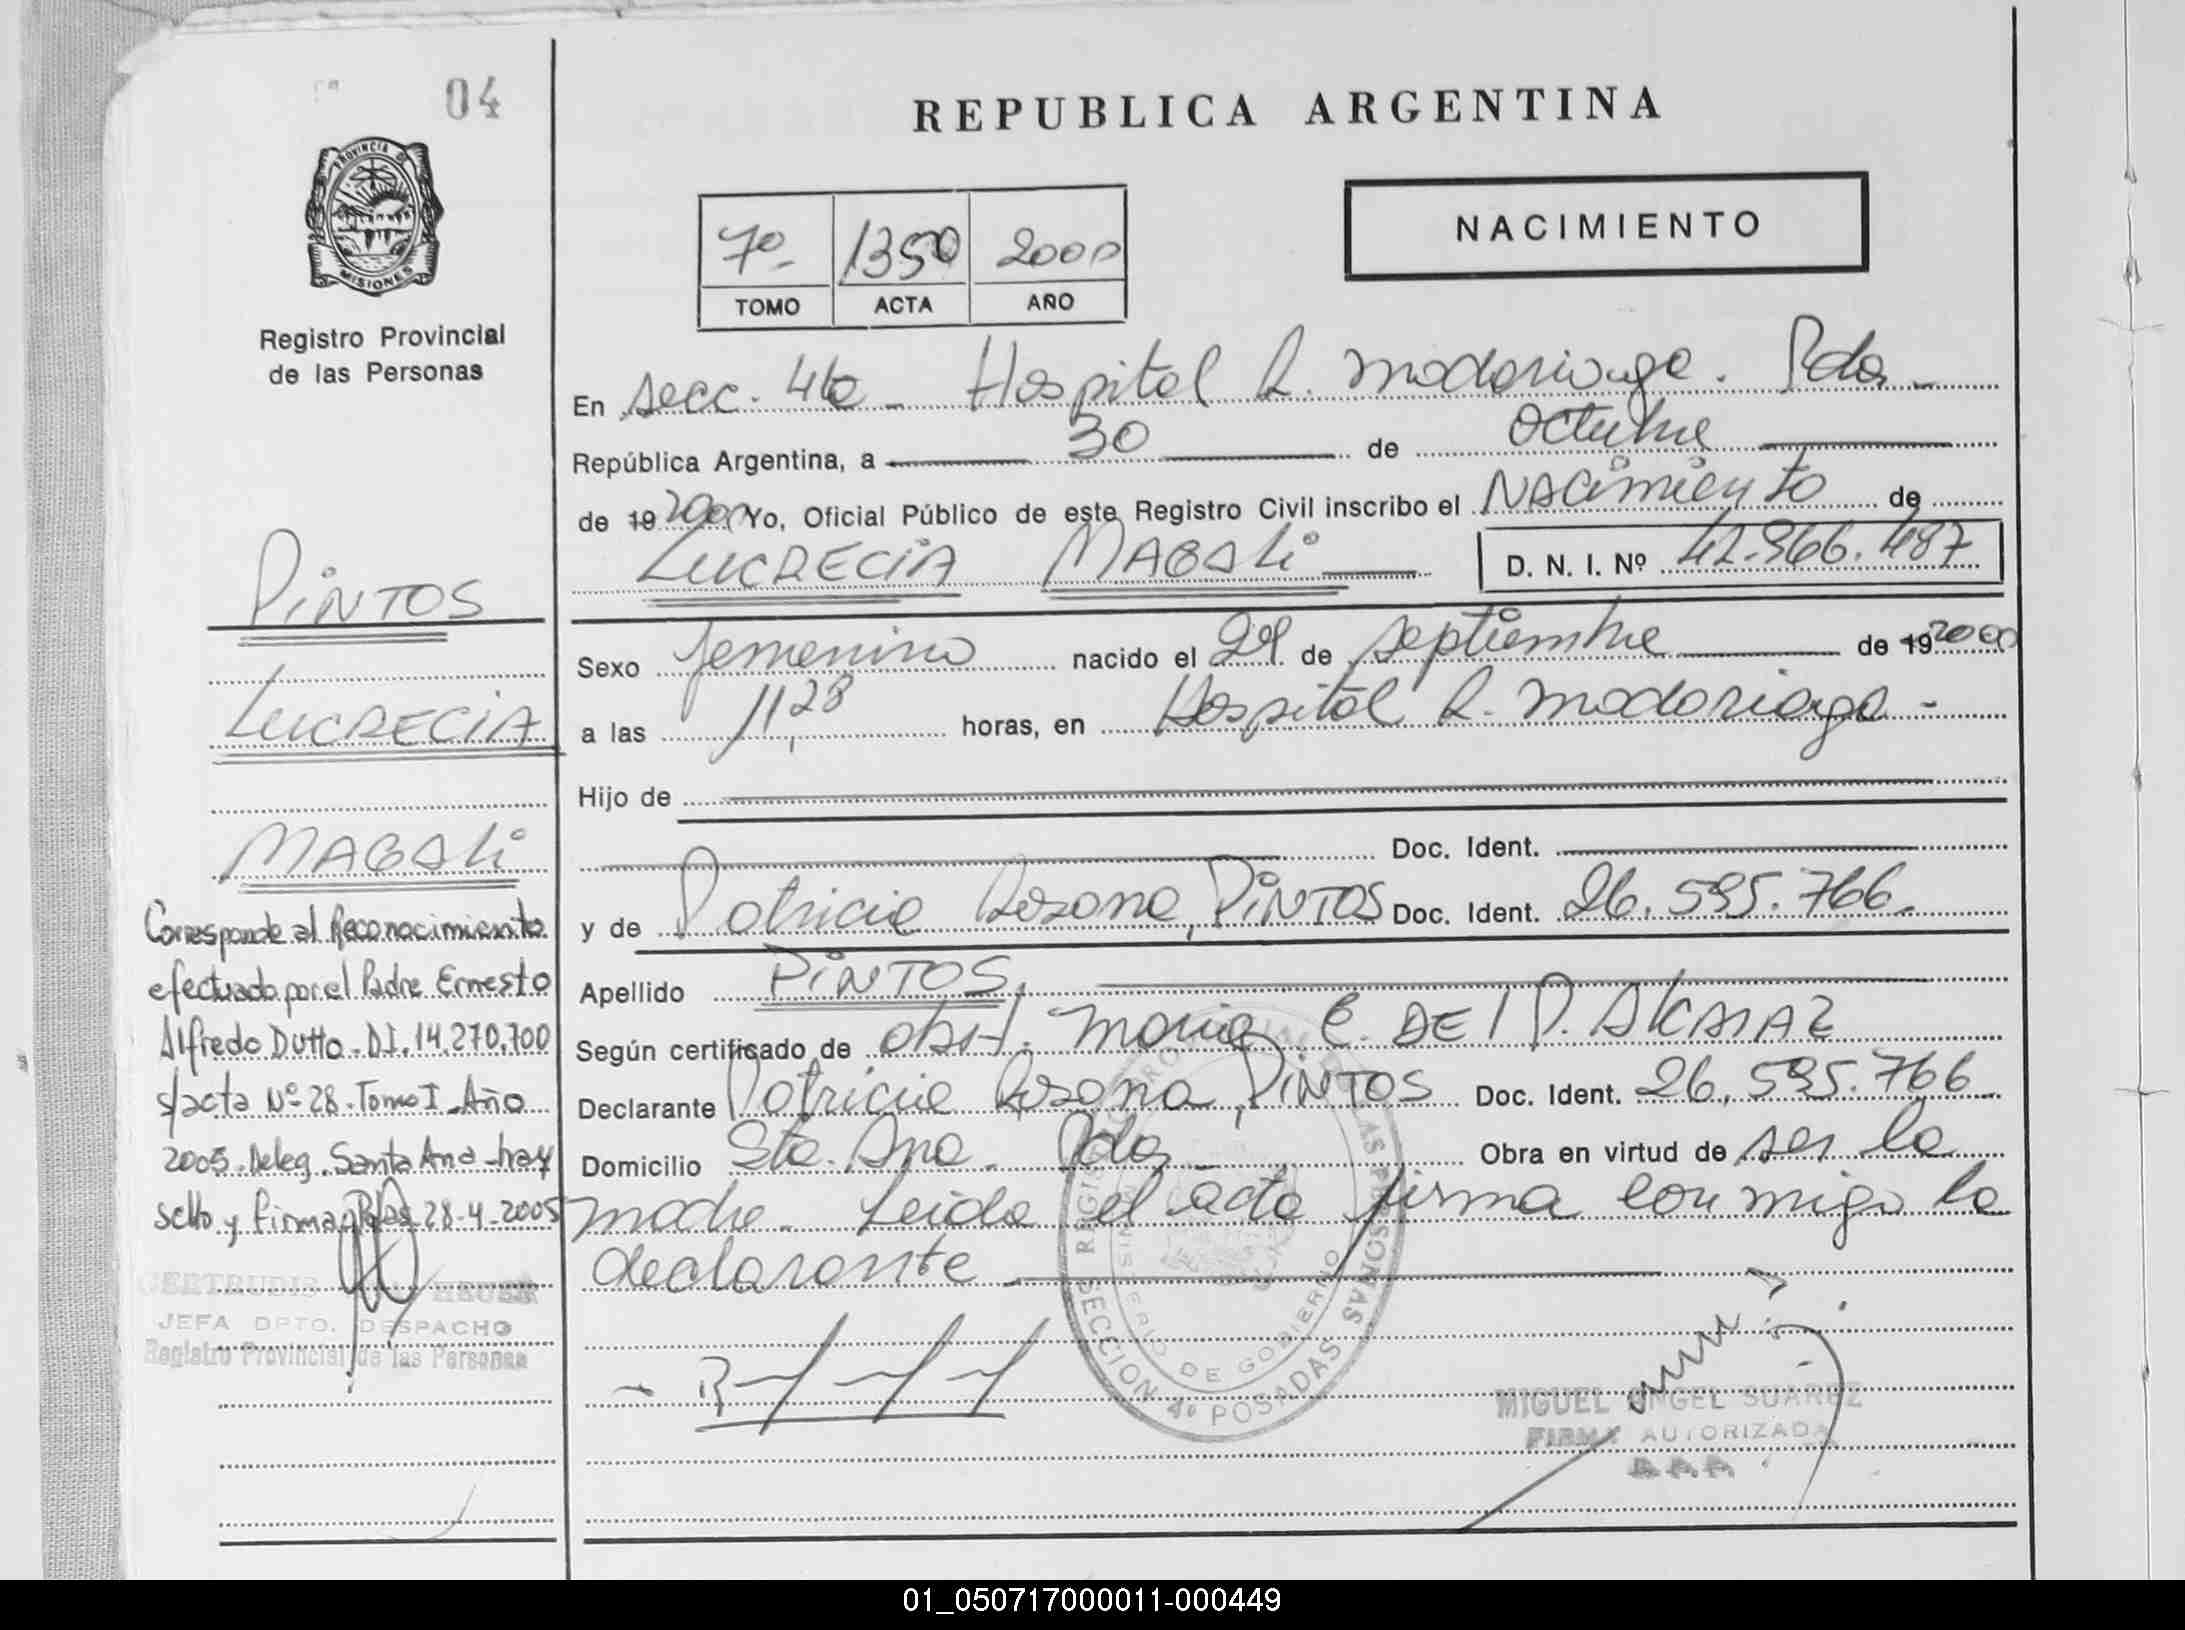 04
REPUBLICA ARGENTINA
PROVINCIA DE
MISIONES
Registro Provincial
de las Personas
7º- 1350 2000
TOMO ACTA AÑO
NACIMIENTO
En secc. 4ta - Hospital R. Madariaga. Pdas -
República Argentina, a 30 de Octubre
de 19 2000 Yo, Oficial Público de este Registro Civil inscribo el NACimiento de
LUCRECIA MAGALI D. N. I. Nº 42.966.487
PINTOS
LUCRECIA
MAGALI
Sexo femenino nacido el 29 de septiembre de 19 2000
a las 11,28 horas, en Hospital R. Madariaga -
Hijo de
Doc. Ident.
y de Patricia Rosana, PINTOS Doc. Ident. 26.595.766.
Apellido PINTOS
Según certificado de obst. Maria C. DE P. ALCARAZ
Declarante Patricia Rosana, PINTOS Doc. Ident. 26.595.766
Domicilio Sta. Ana. Pdas Obra en virtud de ser la
madre. Leida el acta firma conmigo la
declarante
Corresponde al Reconocimiento
efectuado por el Padre Ernesto
Alfredo Dutto - D.I. 14.270.700
s/acta Nº 28 - Tomo I - Año
2005 - Deleg. Santa Ana - hay
sello y firma - Pdas 28-4-2005
GERTRUDIS
JEFA DPTO. DESPACHO
Registro Provincial de las Personas
REGISTRO PROVINCIAL DE LAS PERSONAS
MINISTERIO DE GOBIERNO
SECCION 4ª POSADAS
MIGUEL ANGEL SUAREZ
FIRMA AUTORIZADA
01_050717000011-000449